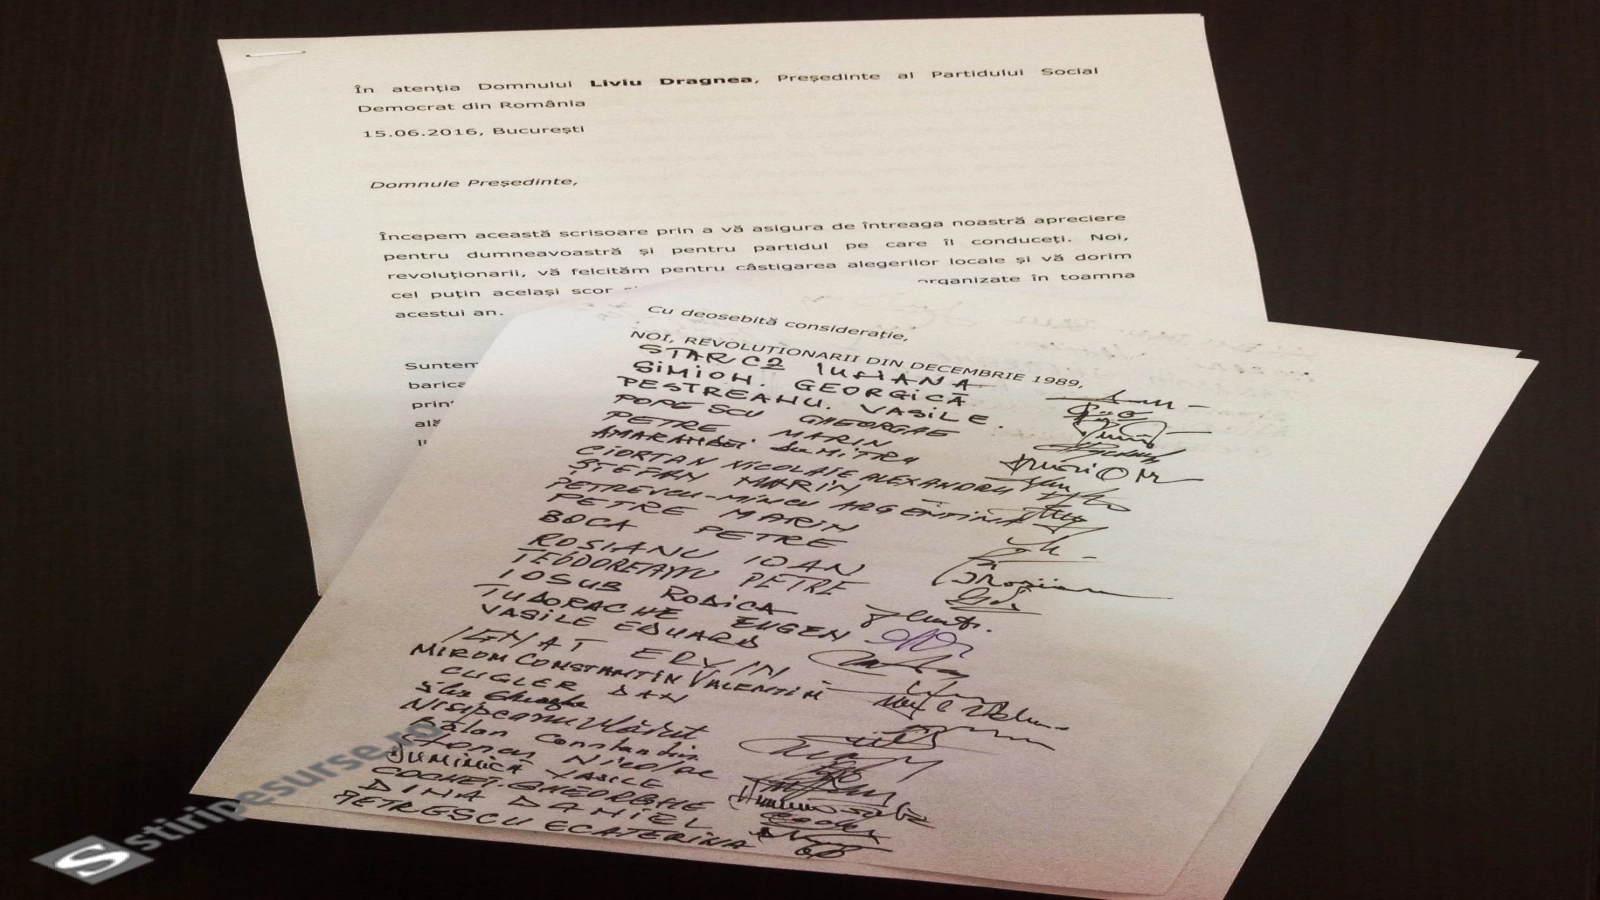 În atenția Domnului Liviu Dragnea, Președinte al Partidului Social
Democrat din România
15.06.2016, București
Domnule Președinte,
Începem această scrisoare prin a vă asigura de întreaga noastră apreciere
pentru dumneavoastră și pentru partidul pe care îl conduceți. Noi,
revoluționarii, vă felcităm pentru câstigarea alegerilor locale și vă dorim
cel puțin același scor organizate în toamna
acestui an.
Suntem
Cu deosebită considerație,
NOI, REVOLUȚIONARII DIN DECEMBRIE 1989,
STARC2 IULIANA
SIMION. GEORGICĂ
PESTREANU. VASILE.
POPESCU GHEORGHE
PETRE MARIN
AMARANDEI DUMITRU
CIORTAN NICOLAIE ALEXANDRU
ȘTEFAN MARIN
PETRESCU-MINCU ARGENTINA
PETRE MARIN
BOCA PETRE
ROSIANU IOAN
TEODOREANU PETRE
IOSUB RODICA
TUDORACHE EUGEN
VASILE EDUARD
IGNAT EDVIN
MIRON CONSTANTIN VALENTIN
CUGLER DAN
Gheorghe
Nisipeanu Vlăduț
Bălan Constandin
Nicolae
JUMINICĂ VASILE
COCHEȚ. GHEORGHE
DINA DANIEL
PETRESCU ECATERINA
stiripesurse.ro